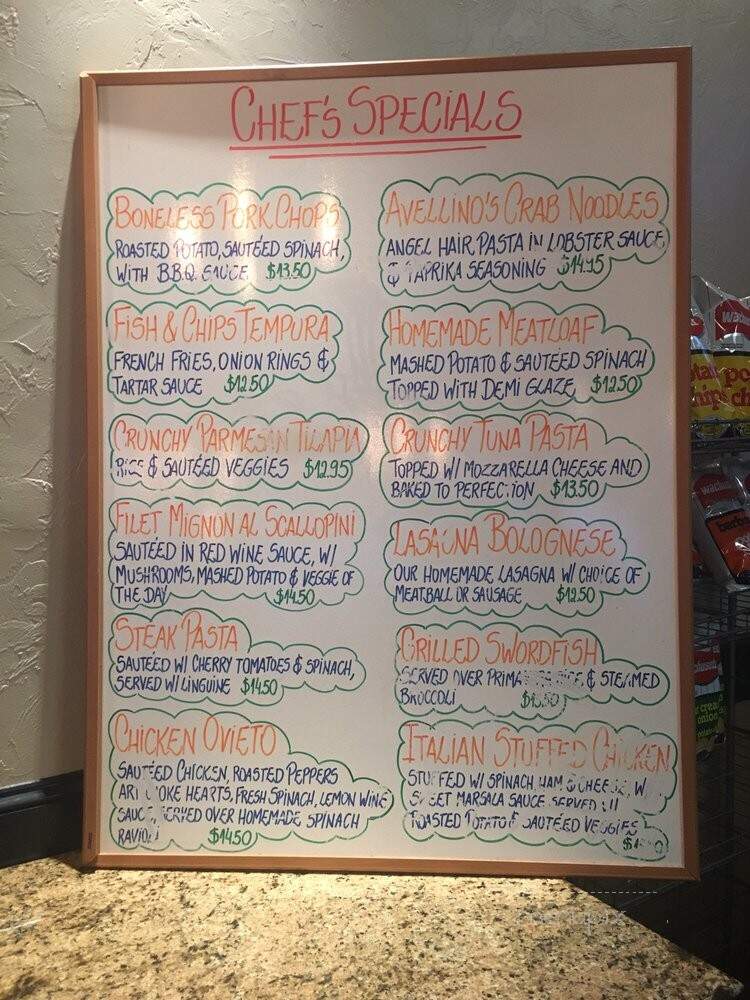 CHEF'S SPECIALS
BONELESS PORK CHOPS
ROASTED POTATO, SAUTÉED SPINACH,
WITH B.B.Q. SAUCE $13.50
FISH & CHIPS TEMPURA
FRENCH FRIES, ONION RINGS &
TARTAR SAUCE $12.50
CRUNCHY PARMESAN TILAPIA
RICE & SAUTÉED VEGGIES $12.95
FILET MIGNON AL SCALLOPINI
SAUTÉED IN RED WINE SAUCE, W/
MUSHROOMS, MASHED POTATO & VEGGIE OF
THE DAY $14.50
STEAK PASTA
SAUTÉED W/ CHERRY TOMATOES & SPINACH,
SERVED W/ LINGUINE $14.50
CHICKEN OVIETO
SAUTÉED CHICKEN, ROASTED PEPPERS
ARTICHOKE HEARTS, FRESH SPINACH, LEMON WINE
SAUCE, SERVED OVER HOMEMADE SPINACH
RAVIOLI $14.50
AVELLINO'S CRAB NOODLES
ANGEL HAIR PASTA IN LOBSTER SAUCE
& PAPRIKA SEASONING $14.95
HOMEMADE MEATLOAF
MASHED POTATO & SAUTÉED SPINACH
TOPPED WITH DEMI GLAZE $12.50
CRUNCHY TUNA PASTA
TOPPED W/ MOZZARELLA CHEESE AND
BAKED TO PERFECTION $13.50
LASAGNA BOLOGNESE
OUR HOMEMADE LASAGNA W/ CHOICE OF
MEATBALL OR SAUSAGE $12.50
GRILLED SWORDFISH
SERVED OVER PRIMAVERA RICE & STEAMED
BROCCOLI
ITALIAN STUFFED CHICKEN
STUFFED W/ SPINACH, HAM & CHEESE, W/
SWEET MARSALA SAUCE SERVED
ROASTED POTATO & SAUTÉED VEGGIES